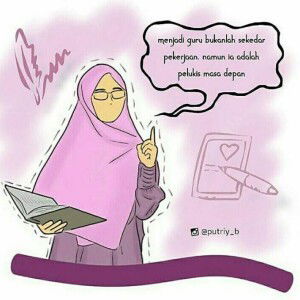 menjadi guru bukanlah sekedar
pekerjaan. namun ia adalah
pelukis masa depan
@putriy_b